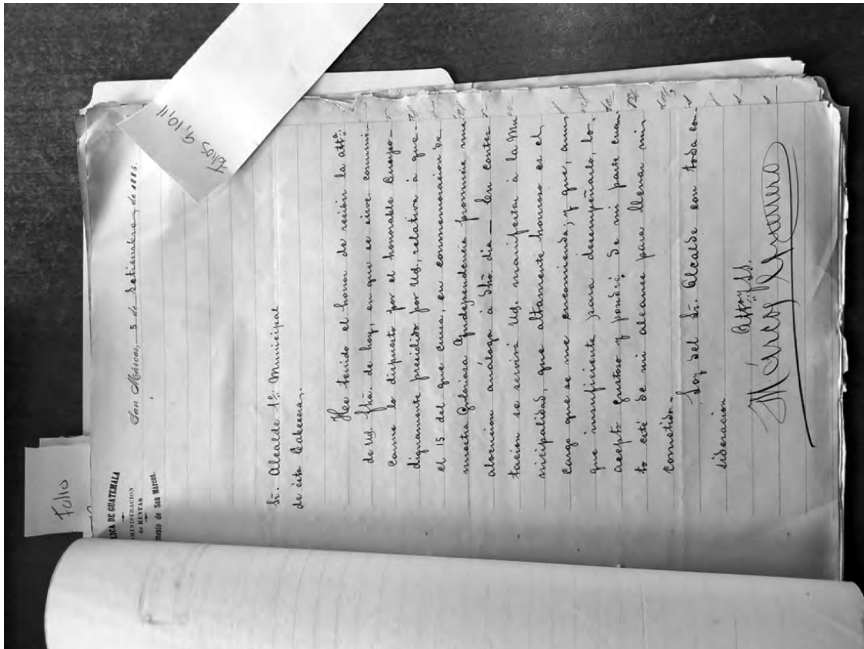 Folio
Folios 9, 10, 11
LICA DE GUATEMALA
MINISTRACION
de RENTAS
mento de San Marcos.
San Marcos, 5 de Setiembre, de 188
Sr. Alcalde 1º Municipal
de esta Cabecera.
He tenido el honor de recibir la attª.
de Ud. fha. de hoy, en que se sirve communi-
carme lo dispuesto por el honorable Cuerpo
dignamente presidido por Ud, relativo á que
el 15 del que cursa, en conmemoracion de
nuestra Gloriosa Independencia pronuncie una
alocucion análoga á dho dia — En contes
tacion se servirá Ud. manifestar á la Mu
nicipalidad, que altamente honroso es el
cargo que se me encomienda; y que, aun
que insuficiente para desempeñarlo, lo
acepto gustoso y pondré de mi parte cuan
to esté de mi alcance para llenar mi
cometido—
Soy del Sr. Alcalde con toda con
sideracion
Marcos